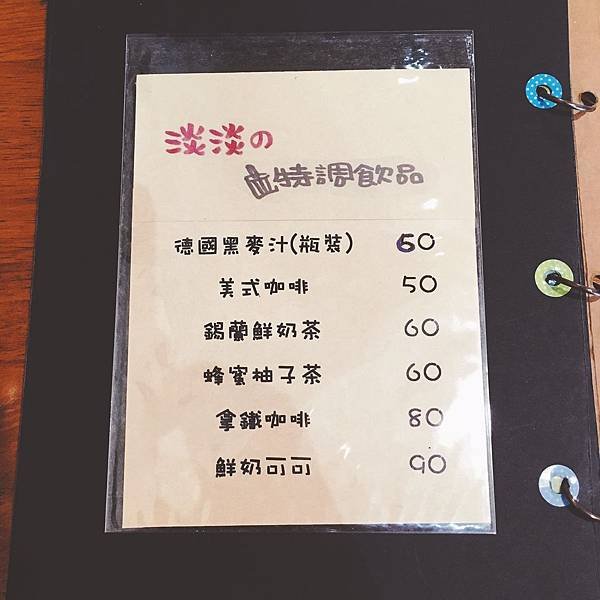 淡淡の
特調飲品
德國黑麥汁(瓶裝) 60
美式咖啡 50
錫蘭鮮奶茶 60
蜂蜜柚子茶 60
拿鐵咖啡 80
鮮奶可可 90